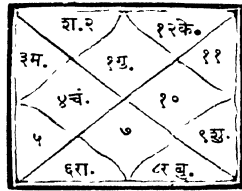 श.२ १२के.
३म. १गु. ११
४चं. १०
५ ७ ९शु.
६रा. ८र बु.